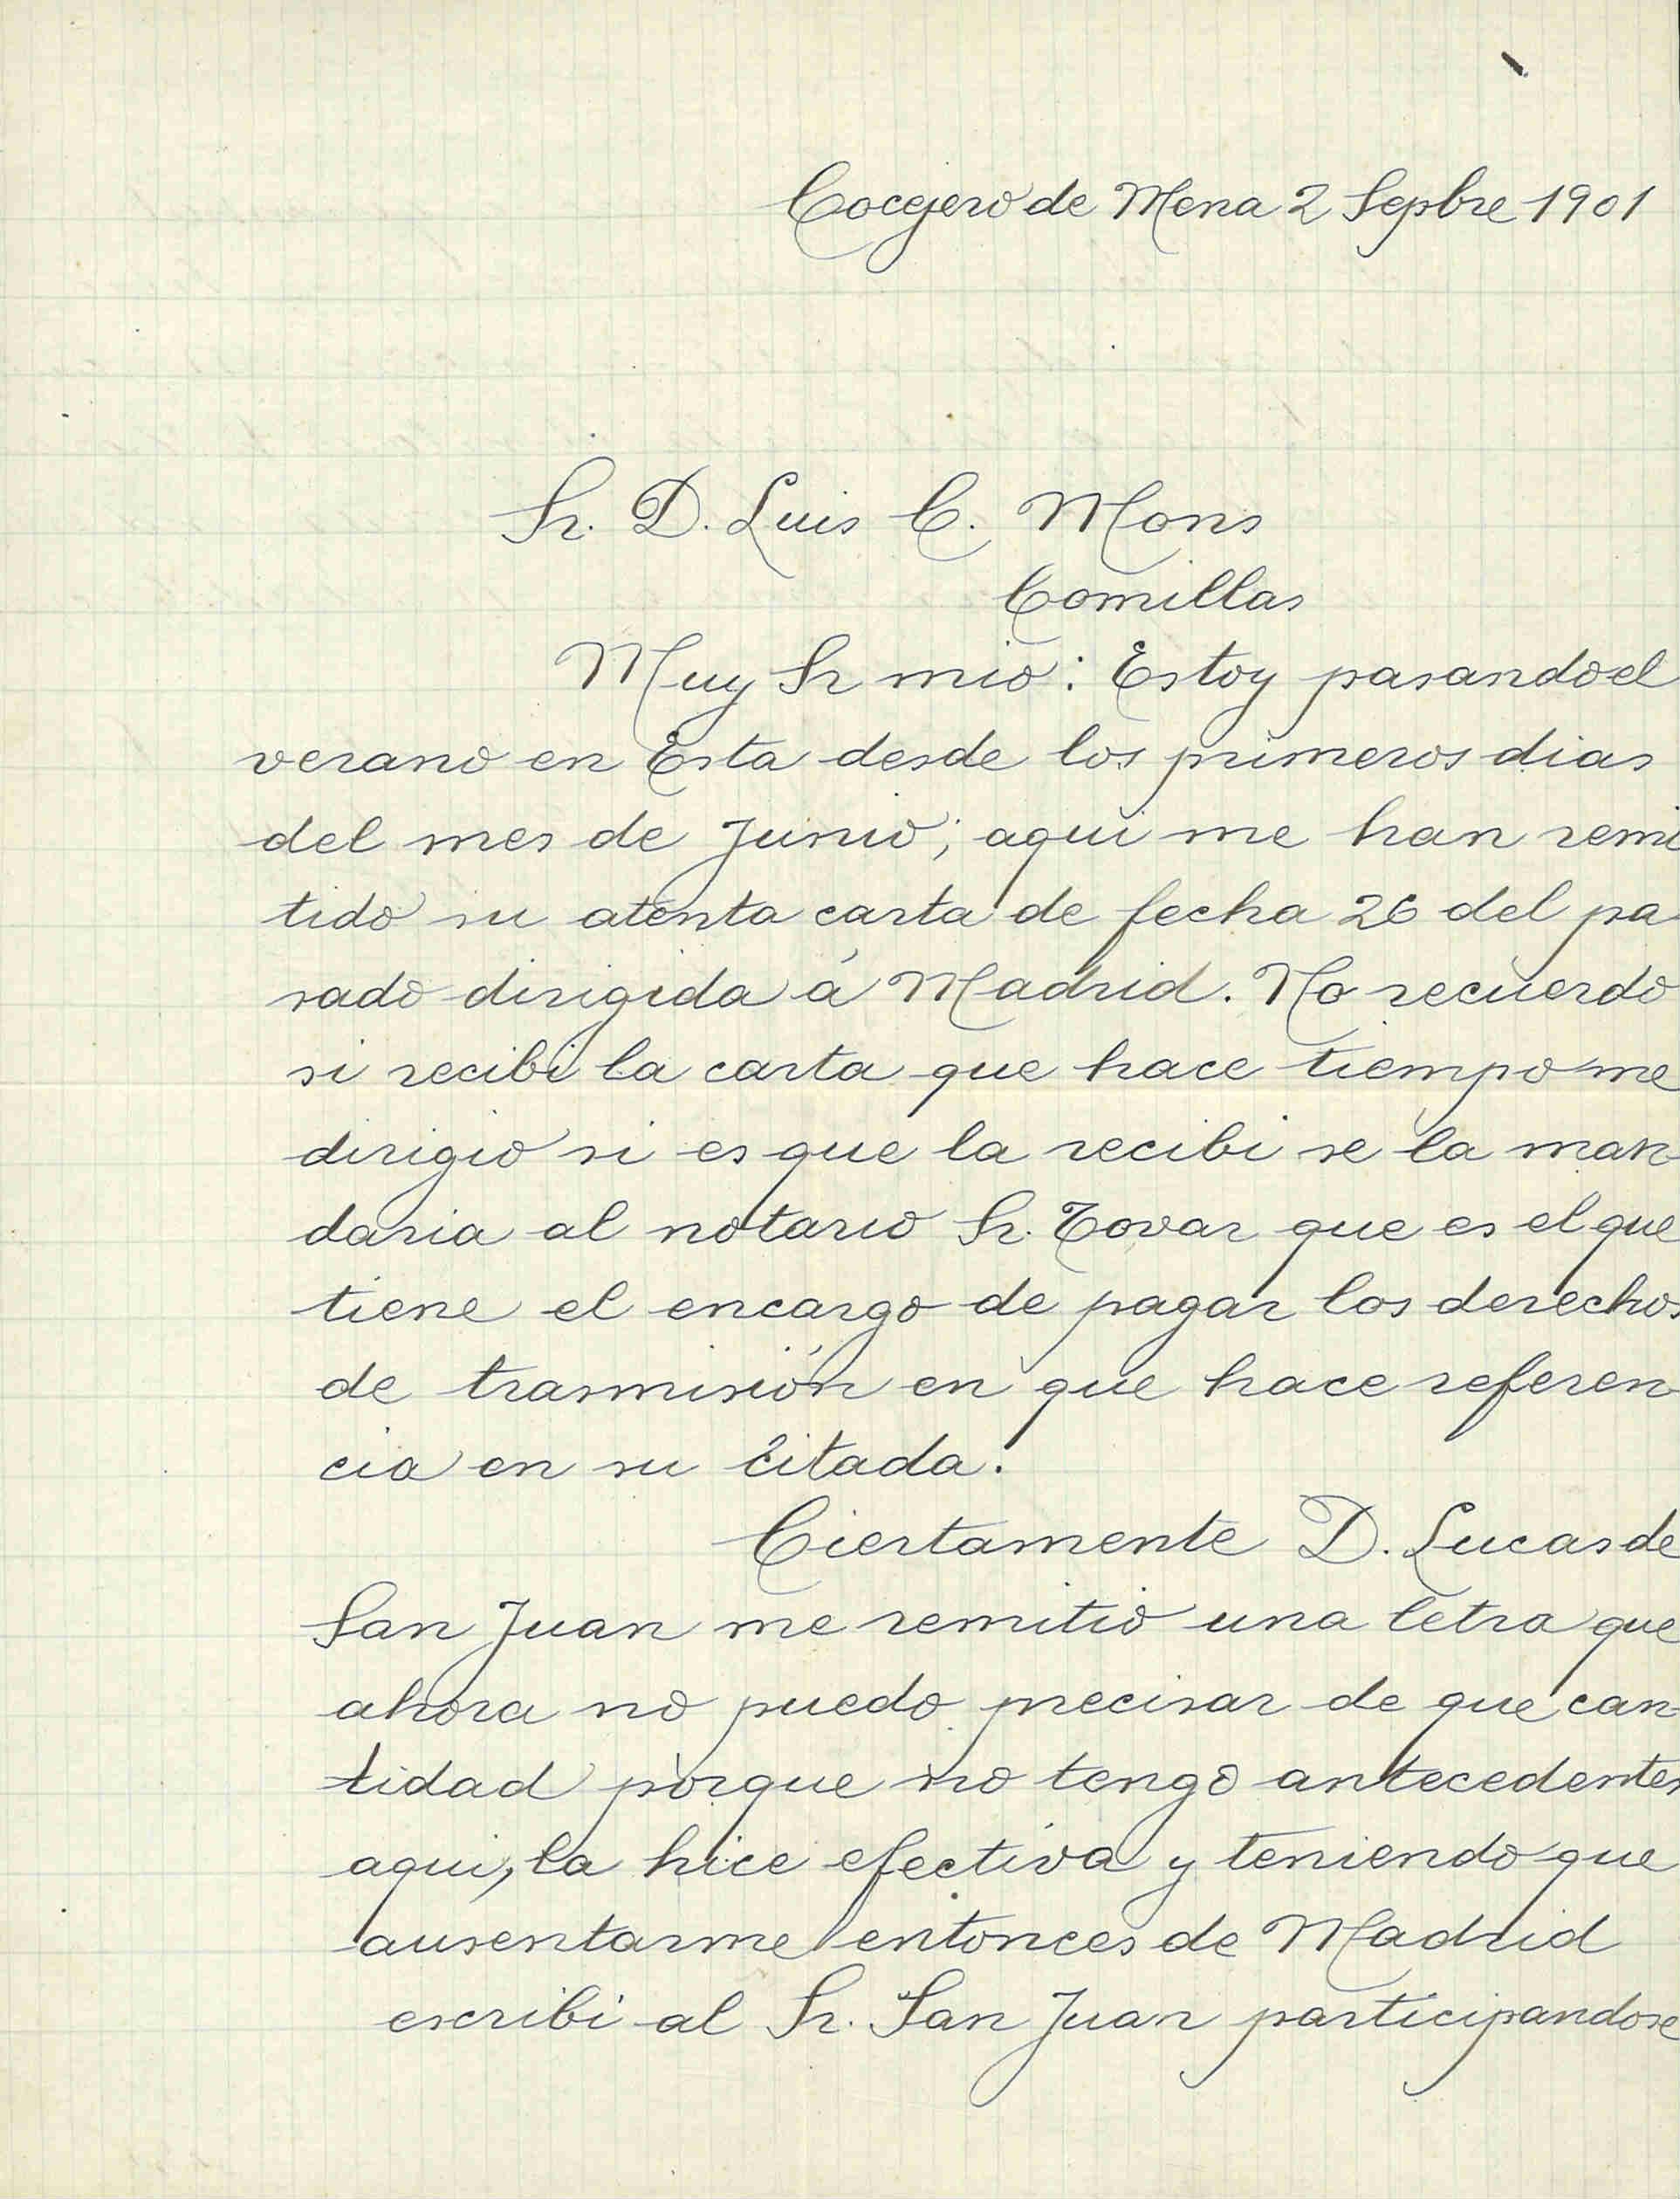 Cocejero de Mena 2 Sepbre 1901
Sr. D. Luis C. Mons
Comillas
Muy Sr mio: Estoy pasando el
verano en Esta desde los primeros dias
del mes de Junio; aqui me han remi
tido su atenta carta de fecha 26 del pa-
sado dirigida á Madrid. No recuerdo
si recibi la carta que hace tiempo me
dirigio si es que la recibi se la man-
daria al notario Sr. Tovar que es el que
tiene el encargo de pagar los derechos
de trasmisión en que hace referen-
cia en su citada.
Ciertamente D. Lucas de
San Juan me remitió una letra que
ahora no puedo precisar de que can-
tidad porque no tengo antecedentes
aqui, la hice efectiva y teniendo que
ausentarme entonces de Madrid
escribi al Sr. San Juan participandose